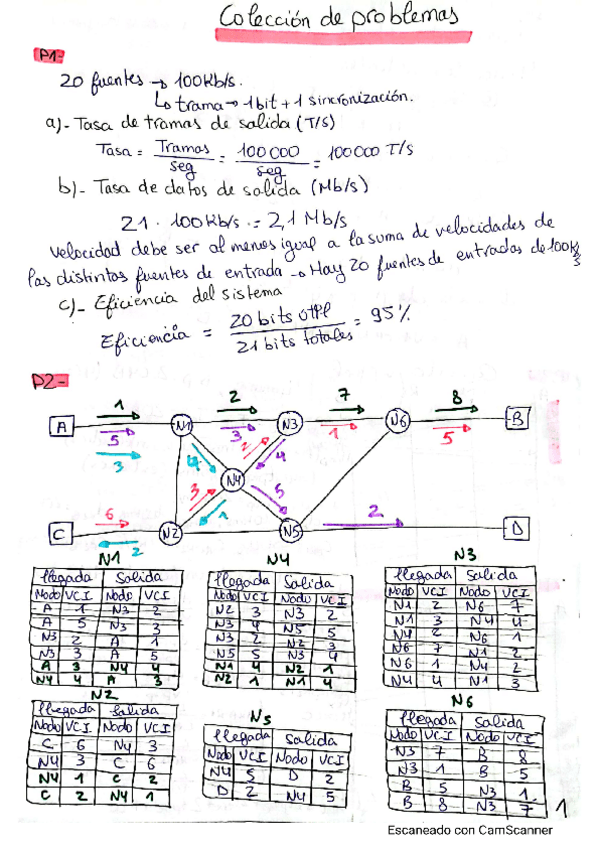 Colección de problemas
P1-
20 fuentes → 100kb/s.
↳ trama → 1bit + 1 sincronización.
a)- Tasa de tramas de salida (T/s)
Tasa = Tramas / seg = 100000 / seg = 100000 T/s
b)- Tasa de datos de salida (Mb/s)
21 · 100kb/s = 2,1 Mb/s
Velocidad debe ser al menos igual a la suma de velocidades de
las distintas fuentes de entrada → Hay 20 fuentes de entradas de 100kb/s
c)- Eficiencia del sistema
Eficiencia = 20 bits útil / 21 bits totales = 95%
P2-
1 2 7 8
A N1 N3 N6 B
5 3 1 5
3 4 2 4
N4
6 3 1 5 2
C N2 N5 D
2
N1 N4 N3
llegada Salida llegada Salida llegada Salida
Nodo VCI Nodo VCI Nodo VCI Nodo VCI Nodo VCI Nodo VCI
A 1 N3 2 N2 3 N3 2 N1 2 N6 7
A 5 N3 3 N3 4 N5 5 N1 3 N4 4
N3 2 A 1 N3 2 N2 3 N4 2 N6 1
N3 3 A 5 N5 5 N3 4 N6 7 N1 2
A 3 N4 4 N1 4 N2 1 N6 1 N4 2
N4 4 A 3 N2 1 N1 4 N4 4 N1 3
N2 N5 N6
llegada Salida llegada Salida llegada Salida
Nodo VCI Nodo VCI Nodo VCI Nodo VCI Nodo VCI Nodo VCI
C 6 N4 3 N4 5 D 2 N3 7 B 8
N4 3 C 6 D 2 N4 5 N3 1 B 5
N4 1 C 2 B 5 N3 1
C 2 N4 1 B 8 N3 7
1
Escaneado con CamScanner